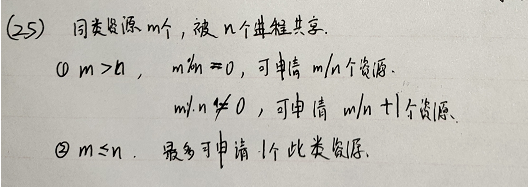 (25) 同类资源 m个，被 n个进程共享.
① m>n， m%n=0，可申请 m/n个资源.
m%n≠0，可申请 m/n+1个资源、
② m≤n. 最多可申请1个此类资源.